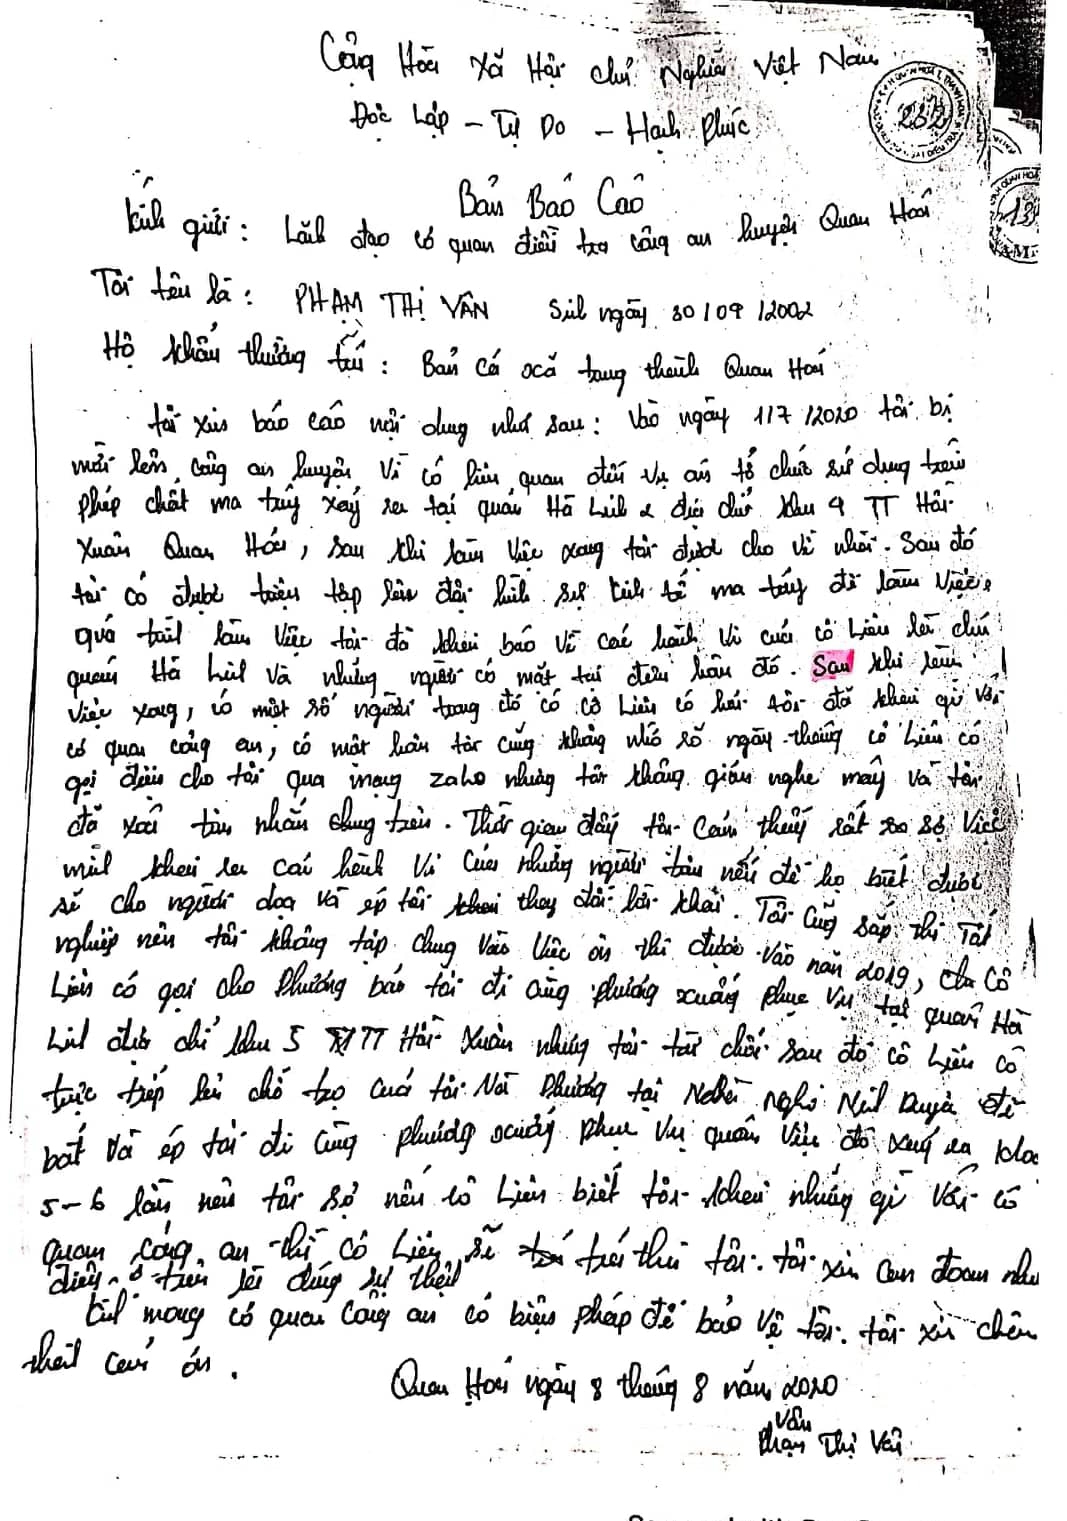 Cộng Hòa Xã Hội Chủ Nghĩa Việt Nam
Độc Lập - Tự Do - Hạnh Phúc
232
Bản Báo Cáo
Kính gửi: Lãnh đạo cơ quan điều tra công an huyện Quan Hoá
Tôi tên là: PHẠM THỊ VÂN Sinh ngày 30/09/2002
Hộ khẩu thường trú: Bản Cá xã trung thành Quan Hoá
tôi xin báo cáo nội dung như sau: Vào ngày 1/7/2020 tôi bị
mời lên công an huyện Vì có liên quan đến vụ án tổ chức sử dụng trái
phép chất ma tuý xảy ra tại quán Hà Linh 2 địa chỉ khu 4 TT Hồi
Xuân Quan Hóa, sau khi làm việc xong tôi được cho về nhà. Sau đó
tôi có được triệu tập lên đội hình sự kinh tế ma túy để làm việc,
quá trình làm việc tôi đã khai báo về các hành vi của cô Liên là chủ
quán Hà Linh và những người có mặt tại đêm hôm đó. Sau khi làm
việc xong, có một số người trong đó có cô Liên có hỏi tôi đã khai gì với
cơ quan công an, có một hôm tôi cũng không nhớ rõ ngày tháng cô Liên có
gọi điện cho tôi qua mạng zalo nhưng tôi không nghe máy và tôi
đã xoá tin nhắn chung trên. Thời gian đấy tôi cảm thấy rất lo sợ việc
mình khai ra các hành vi của những người trên nếu để họ biết được
sẽ cho người dọa và ép tôi thay đổi lời khai. Tôi cũng sắp thi Tốt
nghiệp nên tôi không tập chung vào việc ôn thi được. Vào năm 2019, cô
Liên có gọi cho Phương bảo tôi đi cùng phương xuống phục vụ tại quán Hà
Linh địa chỉ khu 5 TT Hồi Xuân nhưng tôi từ chối sau đó cô Liên có
trực tiếp lên chỗ trọ của tôi Với Phương tại Nhà nghỉ Ninh Duyên để
bắt và ép tôi đi cùng phương xuống phục vụ quán việc đó xảy ra khoảng
5-6 lần nên tôi sợ nếu cô Liên biết tôi khai những gì với cơ
quan công an thì cô Liên sẽ trả thù tôi. tôi xin cam đoan những
điều ở trên là đúng sự thật
Kính mong cơ quan Công an có biện pháp để bảo vệ tôi. tôi xin chân
thành cảm ơn.
Quan Hoá ngày 8 tháng 8 năm 2020
Vân
Phạm Thị Vân